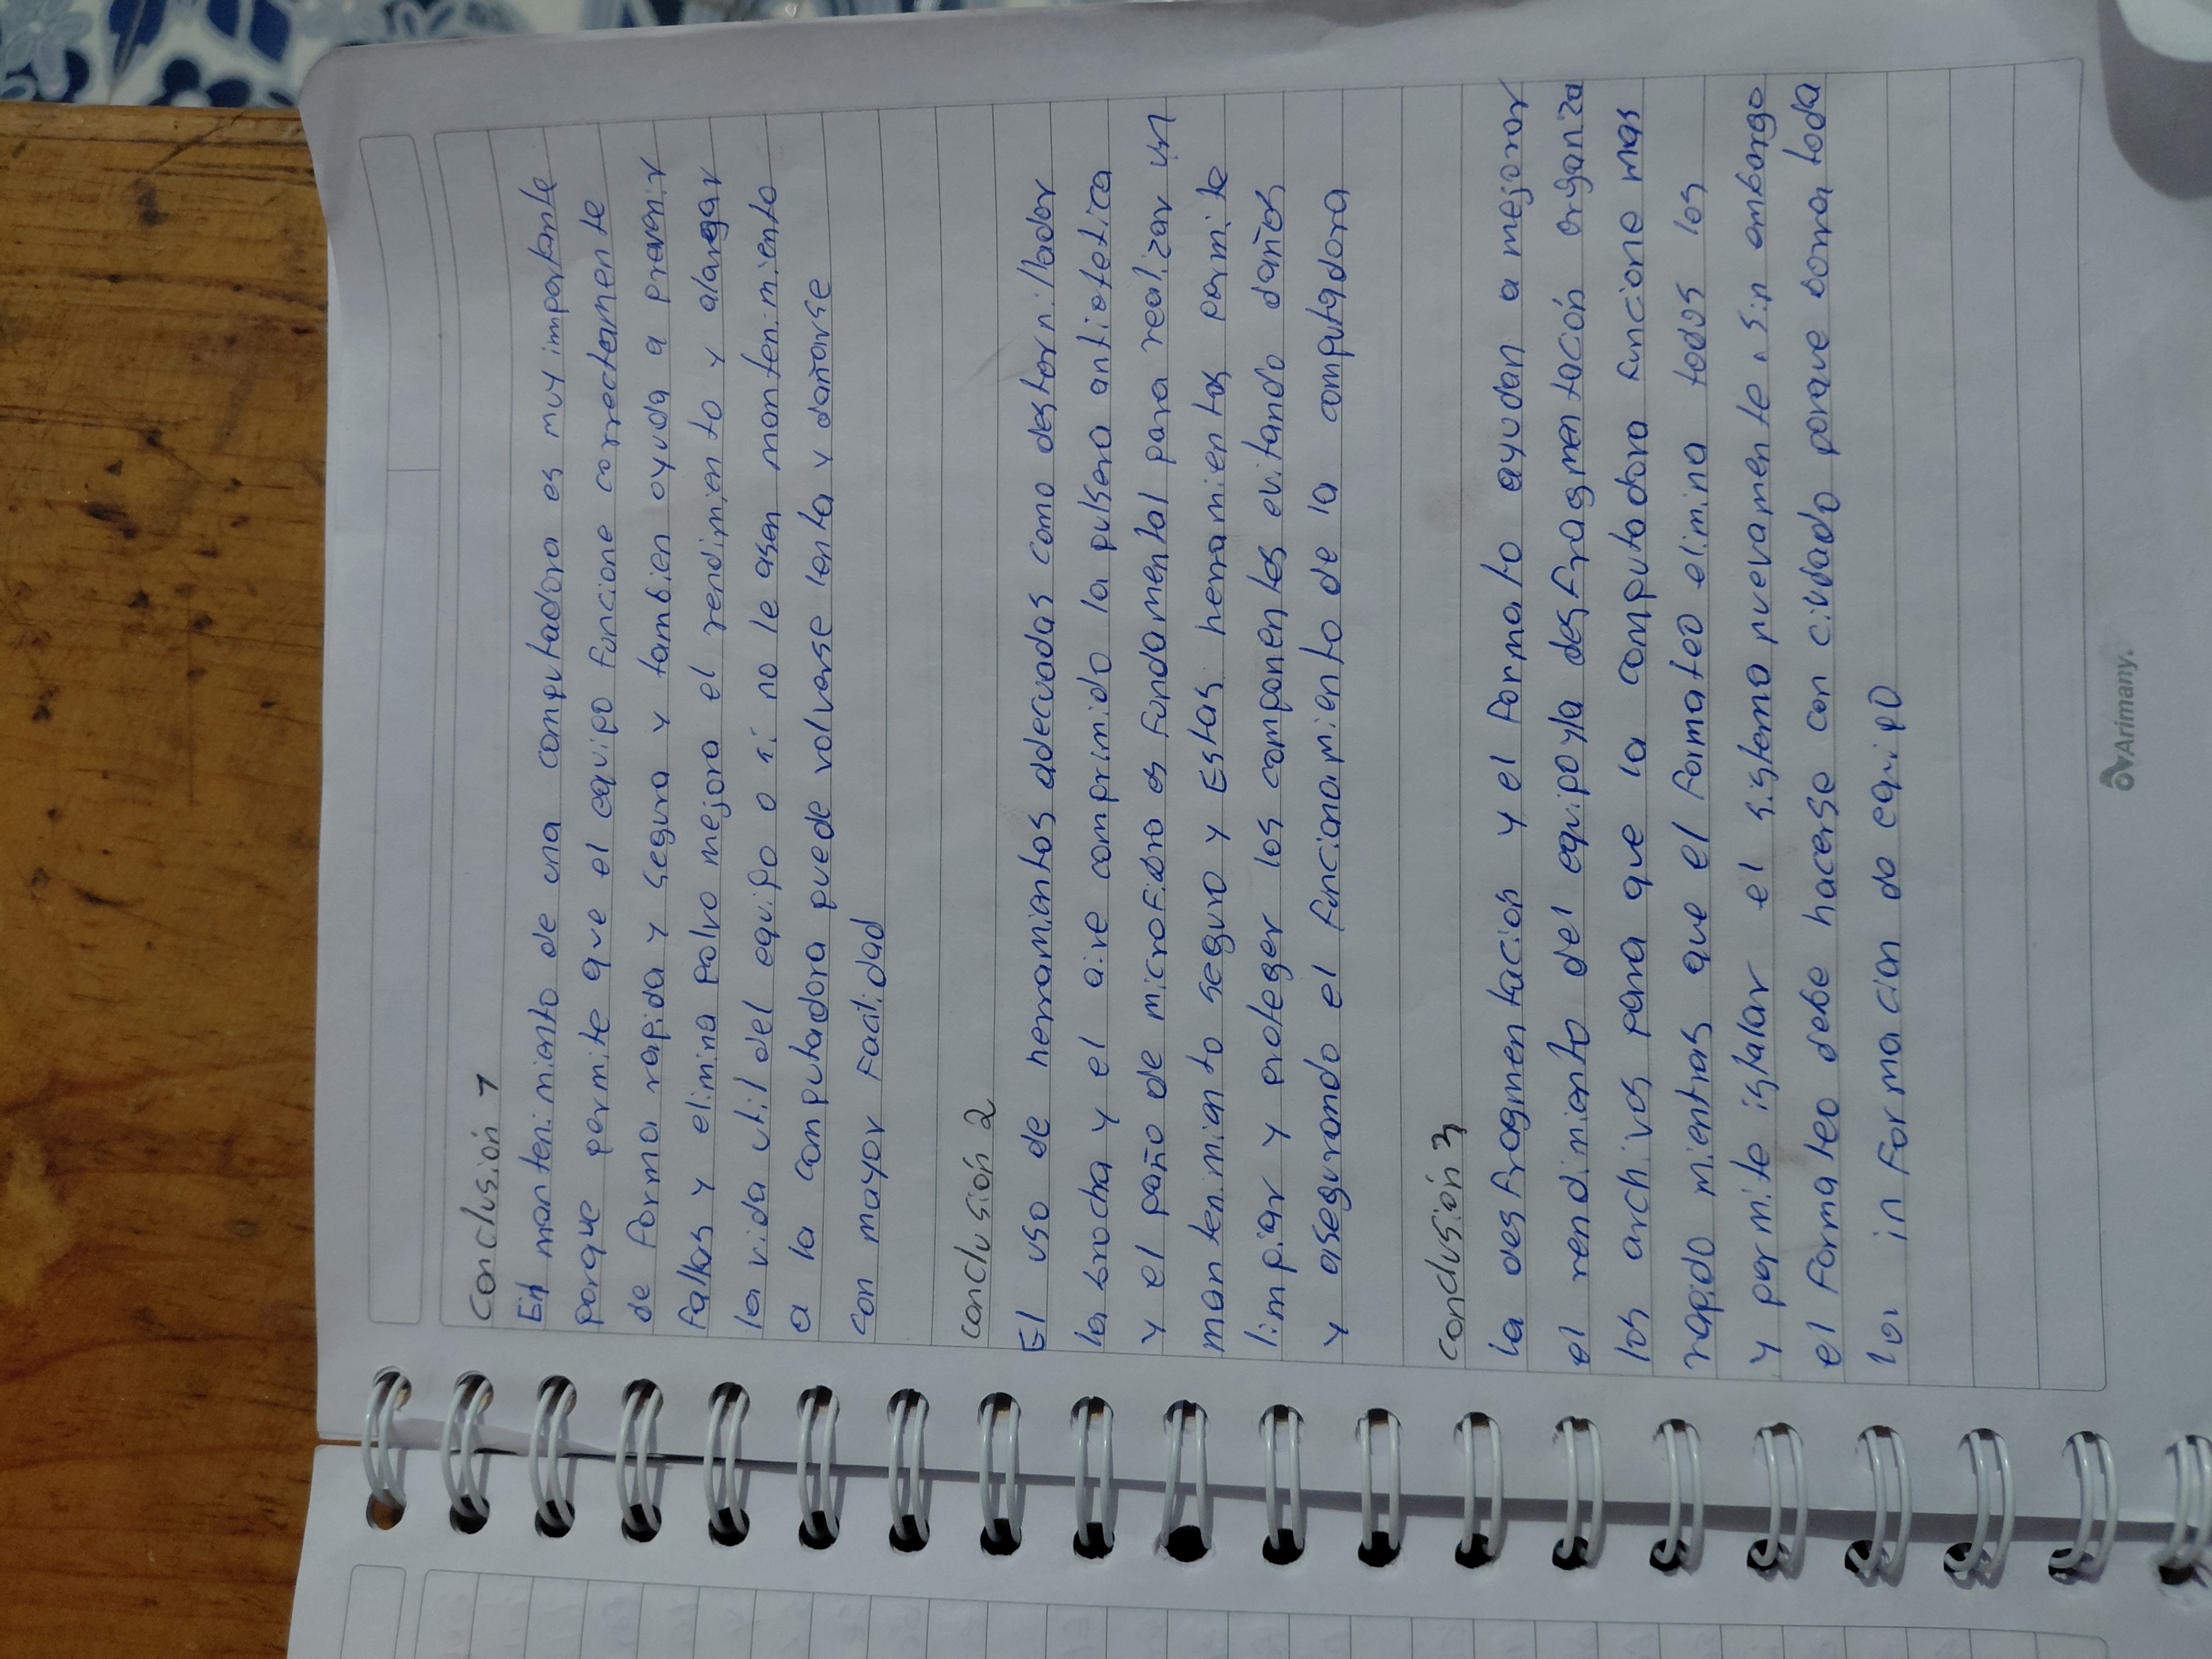 Conclusión 1
El mantenimiento de una computadora es muy importante
porque permite que el equipo funcione correctamente
de forma rapida y segura y tambien ayuda a prevenir
fallas y elimina polvo mejora el rendimiento y alargar
la vida util del equipo o si no le asen mantenimiento
a la computadora puede volverse lenta y dañarse
con mayor facilidad
conclusión 2
El uso de herramientas adecuadas como destornillador
la brocha y el aire comprimido la pulsera antiotetica
y el paño de microfibra es fundamental para realizar un
mantenimiento seguro y Estas herramientas permite
limpiar y proteger los componentes evitando daños
y asegurando el funcionamiento de la computadora
conclusión 3
la desfragmentación y el formato ayudan a mejorar
el rendimiento del equipo y la desfragmentación organiza
los archivos para que la computadora funcione mas
rapido mientras que el formateo elimina todos los
y permite istalar el sistema nuevamente. sin embargo
el formateo debe hacerse con ciudado porque borra toda
la informacion do equipo
Arimany.